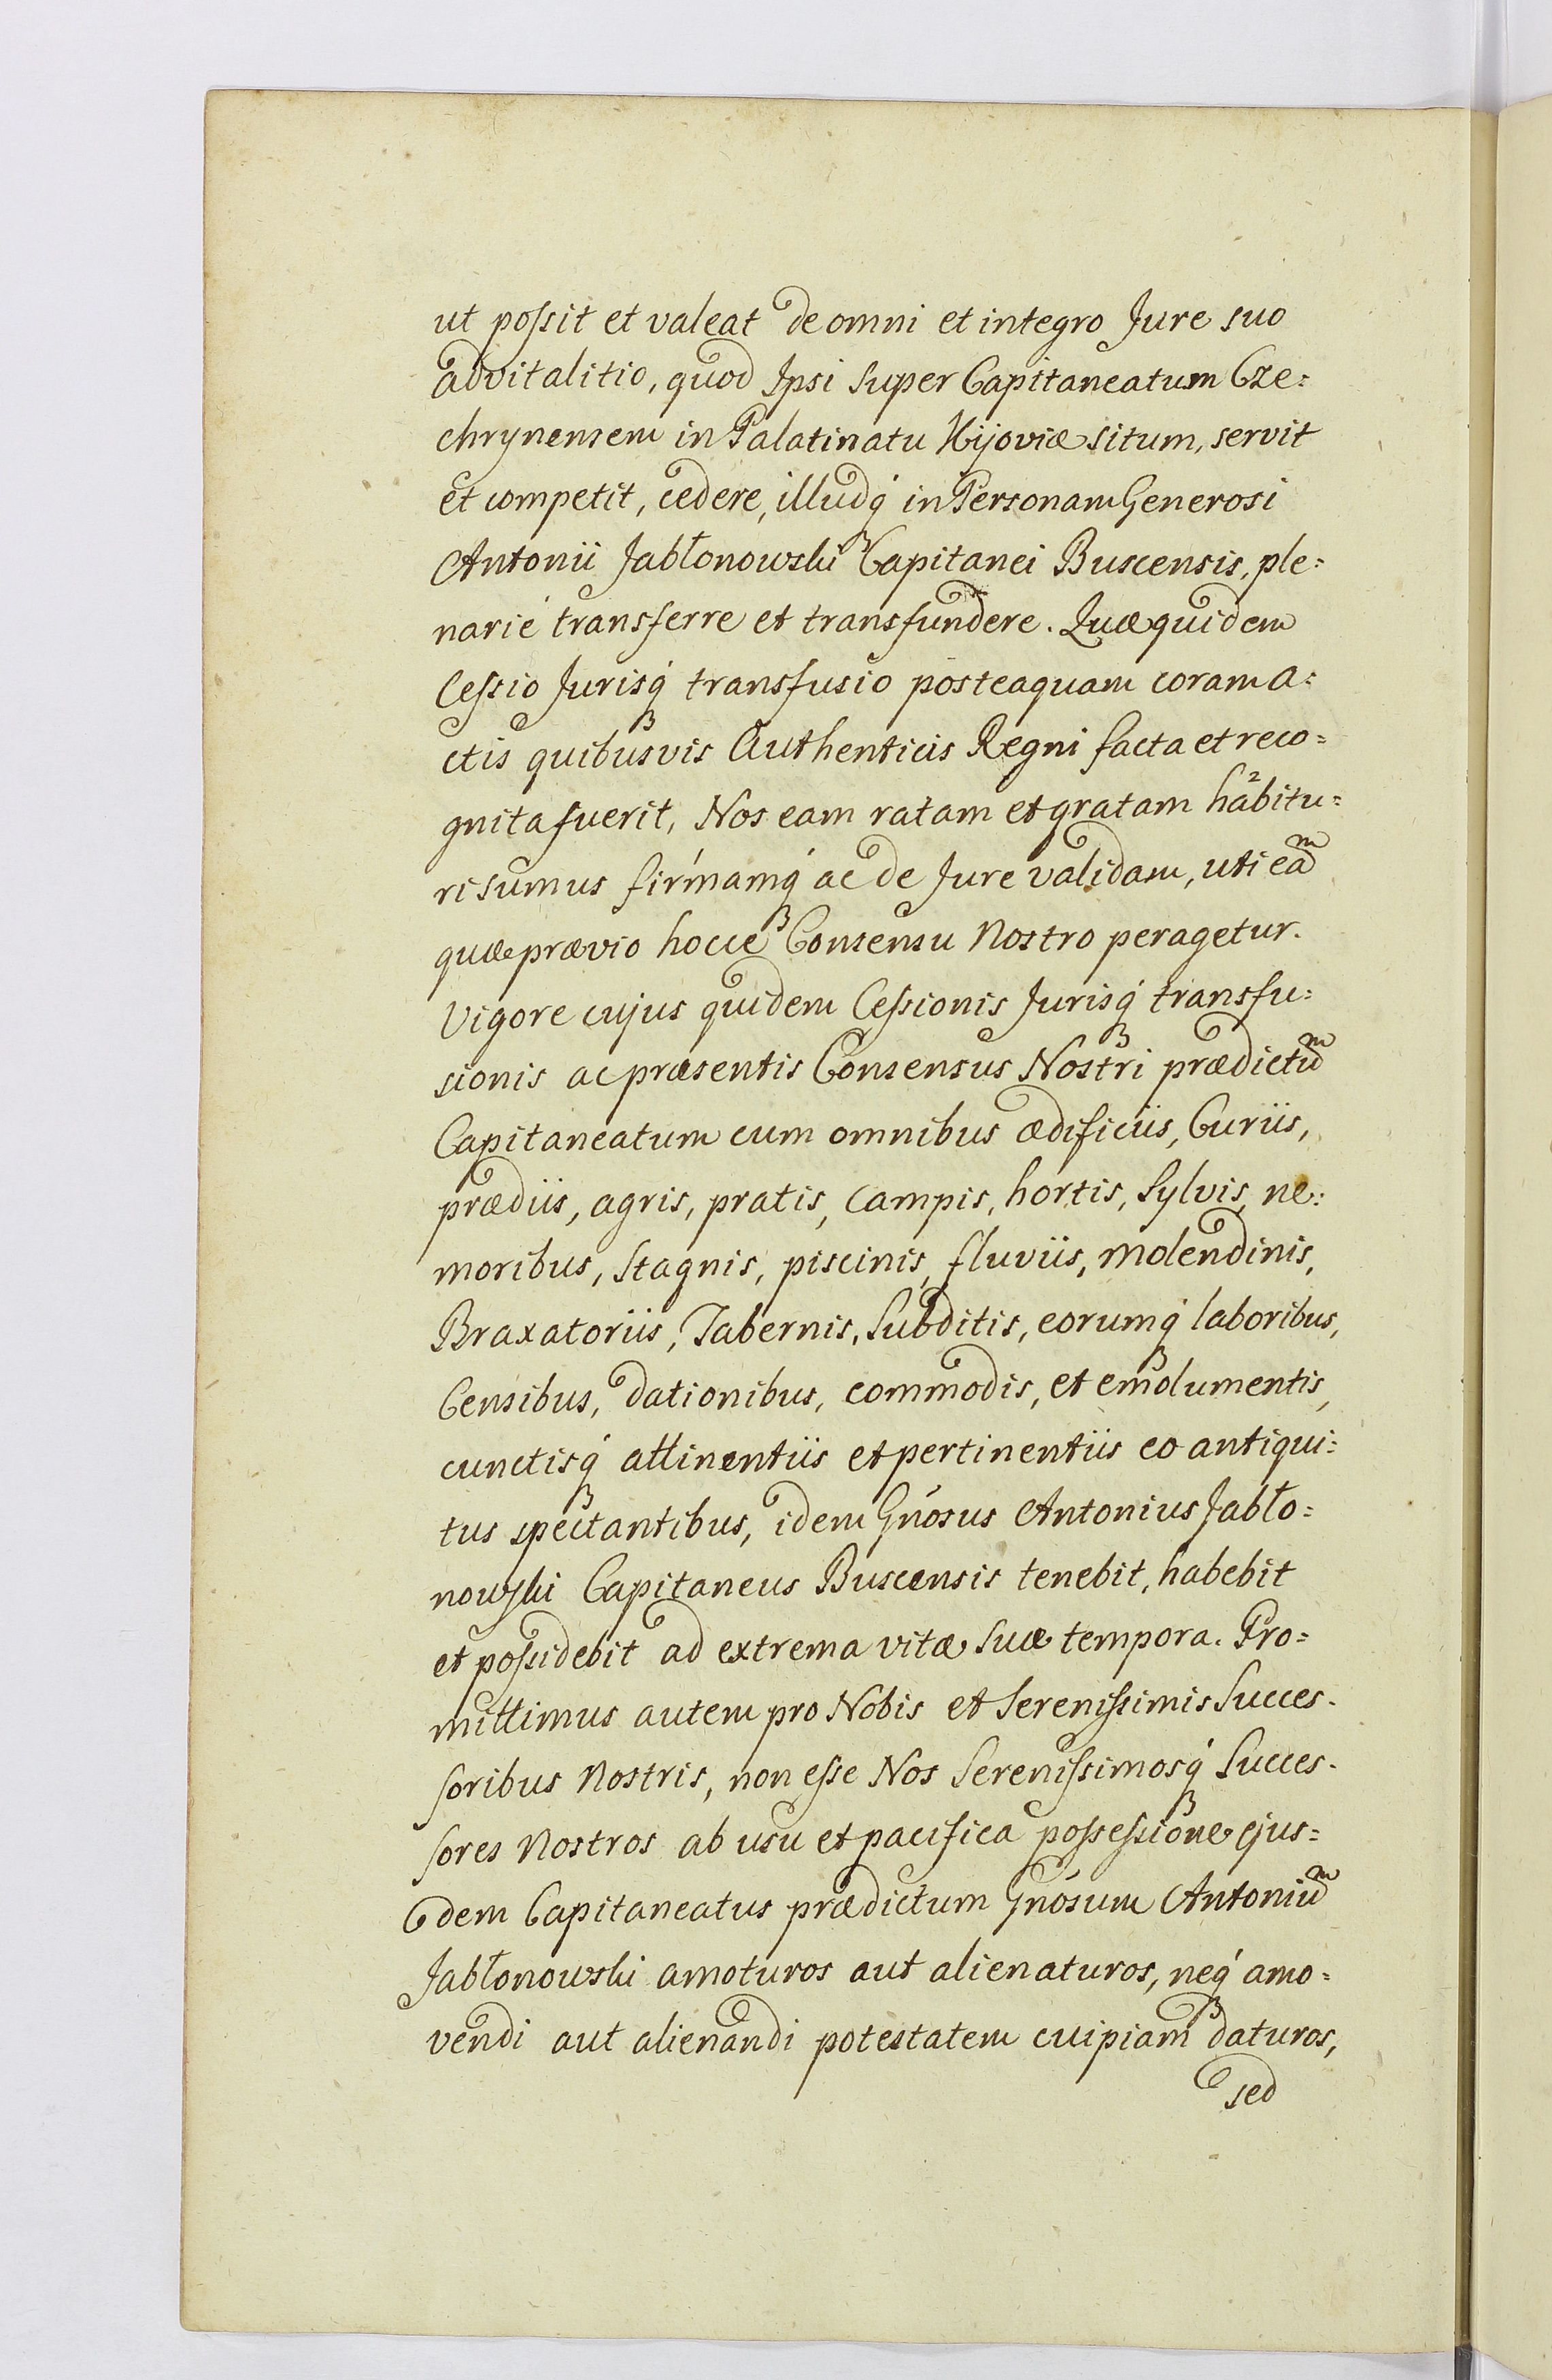 ut possit et valeat de omni et integro Jure suo
advitalitio, quod Ipsi super Capitaneatum Cze=
chrynensem in Palatinatu Kijoviæ situm, servit
et competit, cedere, illudq́ in Personam Generosi
Antonii Jabłonowski Capitanei Buscensis, ple=
narié transferre et transfundere. Quæ quidem
Cessio Jurisq́ transfusio posteaquam coram A=
ctis quibusvis Authenticis Regni facta et reco=
gnita fuerit, Nos eam ratam et gratam habitu=
ri sumus firmamq́ ac de Jure validam, uti eaᵐ
quæ prævio hocce Consensu Nostro peragetur.
Vigore cujus quidem Cessionis Jurisq́ transfu=
sionis ac præsentis Consensus Nostri prædictuᵐ
Capitaneatum cum omnibus ædificiis, Curiis,
prædiis, agris, pratis, campis, hortis, Sylvis, ne=
moribus, Stagnis, piscinis, fluviis, molendinis,
Braxatoriis, Tabernis, Subditis, eorumq́ laboribus,
Censibus, dationibus, commodis, et emolumentis,
cunctisq́ attinentiis et pertinentiis eo antiqui=
tus spectantibus, idem Gnósus Antonius Jabło=
nowski Capitaneus Buscensis tenebit, habebit
et possidebit ad extrema vitæ suæ tempora. Pro=
mittimus autem pro Nobis et Serenissimis Succes-
soribus Nostris, non esse Nos Serenissimosq́ Succes-
sores Nostros ab usu et pacifica possessione ejus=
dem Capitaneatus prædictum Gnósum Antoniuᵐ
Jabłonowski amoturos aut alienaturos, neq́ amo=
vendi aut alienandi potestatem cuipiam daturos,
sed